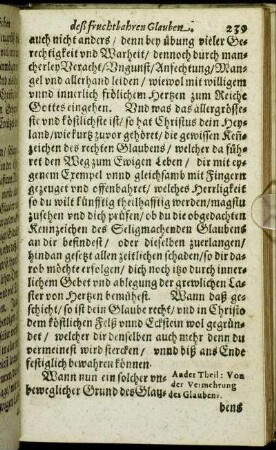 deß fruchtbahren Glauben. 239
auch nicht anders / denn bey übung vieler Ge-
rechtigkeit vnd Warheit / dennoch durch man-
cherley Veracht / Vngunst / Anfechtung / Man-
gel vnd allerhand leiden / wiewol mit willigem
vnnd innerlich frölichem Hertzen zum Reiche
Gottes eingehen. Vnd was das allergröskeste
ste vnd köstlichste ist / so hat Christus dein Hey-
land / wie kurtz zuvor gehöret / die gewissen Keñ-
zeichen des rechten Glaubens / welcher da füh-
ret den Weg zum Ewigen Leben / dir mit ey-
genem Exempel vnnd gleichsamb mit Fingern
gezeuget vnd offenbahret / welches Herrligkeit
so du wilt künfftig theilhafftig werden / magstu
zusehen vnd dich prüfen / ob du die obgedachten
Kennzeichen des Seligmachenden Glaubens
an dir befindest / oder dieselben zuerlangen /
hindan gesetzt allen zeitlichen schaden / so dir da-
rob möchte erfolgen / dich noch itzo durch inner-
lichem Gebet vnd ablegung der grewlichen La-
ster von Hertzen bemühest. Wann daß ge-
schicht / so ist dein Glaube recht / vnd in Christo
dem köstlichen Felß vnnd Eckstein wol gegrün-
det / welcher dir denselben auch mehr denn du
vermeinest wird stercken / vnnd biß ans Ende
festiglich bewahren können.
Wann nun ein solcher vn-
beweglicher Grund des Glau-
Ander Theil: Von
der Vermehrung
des Glaubens.
bens